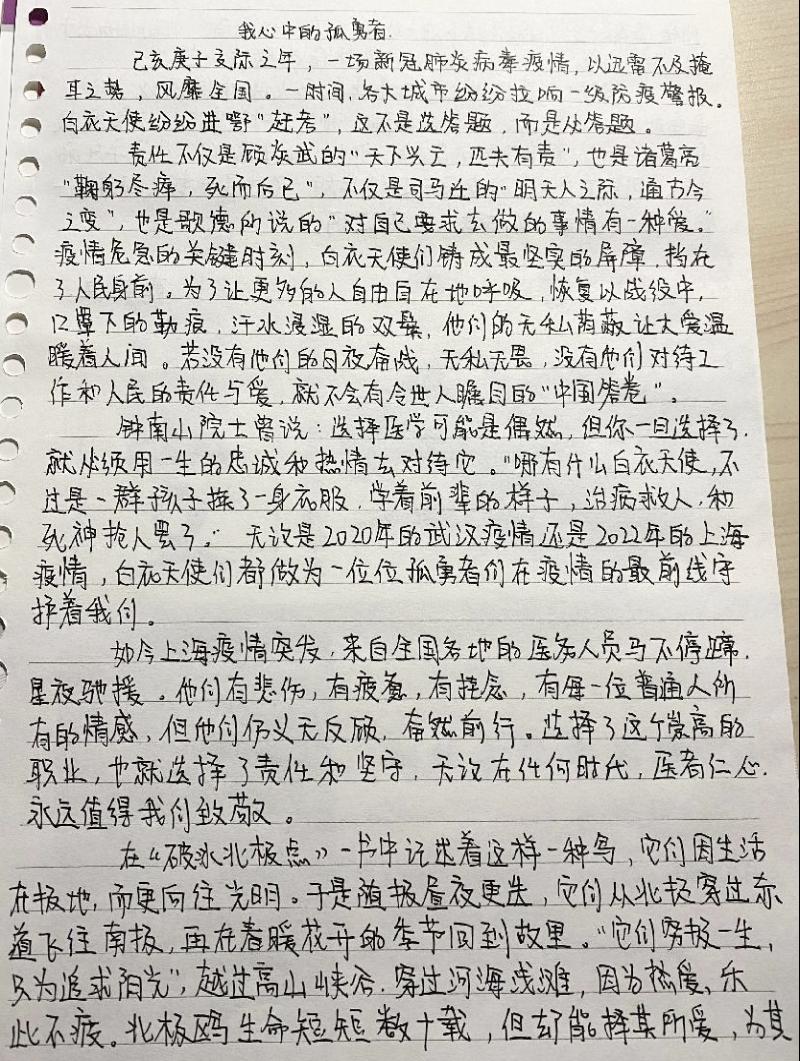 我心中的孤勇者.
己亥庚子交际之年，一场新冠肺炎病毒疫情，以迅雷不及掩
耳之势，风靡全国。一时间，各大城市纷纷拉响一级防疫警报。
白衣天使纷纷进鄂“赶考”，这不是选答题，而是必答题。
责任不仅是顾炎武的“天下兴亡，匹夫有责”，也是诸葛亮
“鞠躬尽瘁，死而后已”，不仅是司马迁的“明天人之际，通古今
之变”，也是歌德所说的“对自己要求去做的事情有一种爱。”
疫情危急的关键时刻，白衣天使们铸成最坚实的屏障，挡在
了人民身前。为了让更多的人自由自在地呼吸，恢复以战役中，
口罩下的勒痕，汗水浸湿的双鬓，他们的无私让大爱温
暖着人间。若没有他们的日夜奋战，无私无畏，没有他们对待工
作和人民的责任与爱，就不会有令世人瞩目的“中国答卷”。
钟南山院士曾说：选择医学可能是偶然，但你一旦选择了，
就必须用一生的忠诚和热情去对待它。“哪有什么白衣天使，不
过是一群孩子换了一身衣服，学着前辈的样子，治病救人，和
死神抢人罢了。” 无论是2020年的武汉疫情还是2022年的上海
疫情，白衣天使们都做为一位位孤勇者们在疫情的最前线守
护着我们。
如今上海疫情突发，来自全国各地的医务人员马不停蹄，
星夜驰援。他们有悲伤，有疲惫，有挂念，有每一位普通人所
有的情感，但他们仍义无反顾，奋然前行。选择了这个崇高的
职业，也就选择了责任和坚守，无论在任何时代，医者仁心，
永远值得我们致敬。
在《破冰北极点》一书中记述着这样一种鸟，它们因生活
在极地，而更向往光明。于是随极昼夜更迭，它们从北极穿过赤
道飞往南极，再在春暖花开的季节回到故里。“它们穷极一生，
只为追求阳光”，越过高山峡谷，穿过河海浅滩，因为热爱，乐
此不疲。北极鸥生命短短数十载，但却能择其所爱，为其